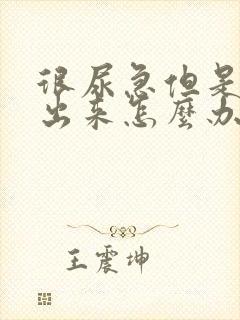 很尿急但是
出来怎麼办
王震坤